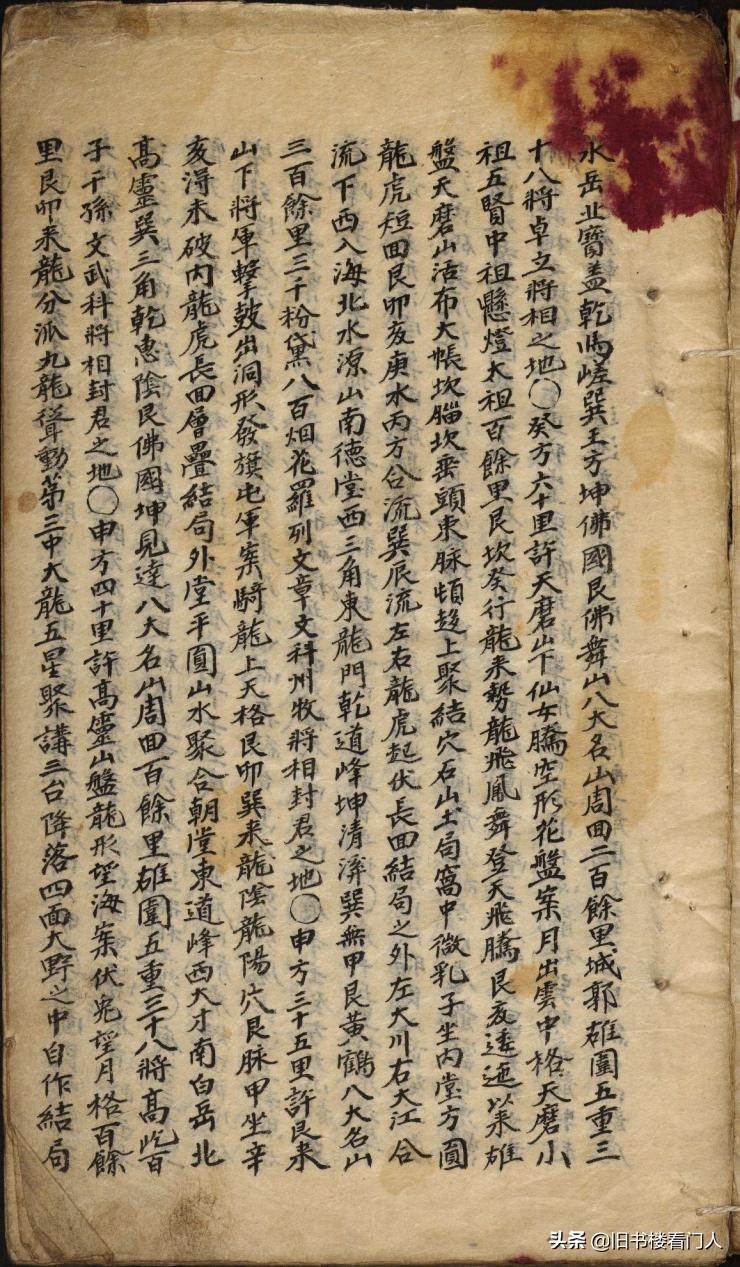 水岳北寶盖乾馬嵯巽王方坤佛國艮佛舞山八大名山周回二百餘里城郭雄圍五重三
十八將卓立將相之地〇癸方六十里許天磨山下仙女騰空形花盤案月出雲中格天磨小
祖五賢中祖懸燈太祖百餘里艮坎癸行龍来勢龍飛鳳舞登天飛騰艮亥逶迤以来雄
盤天磨山活布大帳坎腦坎垂頭東脉頓起上聚結穴石山土局窩中微乳子坐内堂方圓
龍虎短回艮卯亥庚水丙方合流巽辰流左右龍虎起伏長回結局之外左大川右大江合
流下西入海北水源山南德堂西三角東龍門乾道峰坤清溪巽無甲艮黃鶴八大名山
三百餘里三千粉黛八百烟花羅列文章文科州牧將相封君之地〇申方三十五里許艮来
山下將軍擊鼓出洞形發旗屯軍案騎龍上天格艮卯巽来龍陰龍陽穴艮脉甲坐辛
亥得未破内龍虎長回層疊結局外堂平圓山水聚合朝堂東道峰西大才南白岳北
高靈巽三角乾惠陰艮佛國坤見達八大名山周回百餘里雄圍五重三十八將高屹百
子千孫文武科將相封君之地〇申方四十里許高靈山盤龍形望海案伏兎望月格百餘
里艮卯来龍分派九龍聳動第三中大龍五星聚講三台降落四面大野之中自作結局
头条 @旧书楼看门人